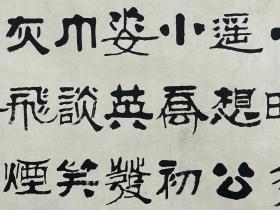 遥想公
小喬初
姿英發
巾談笑
灰飛煙